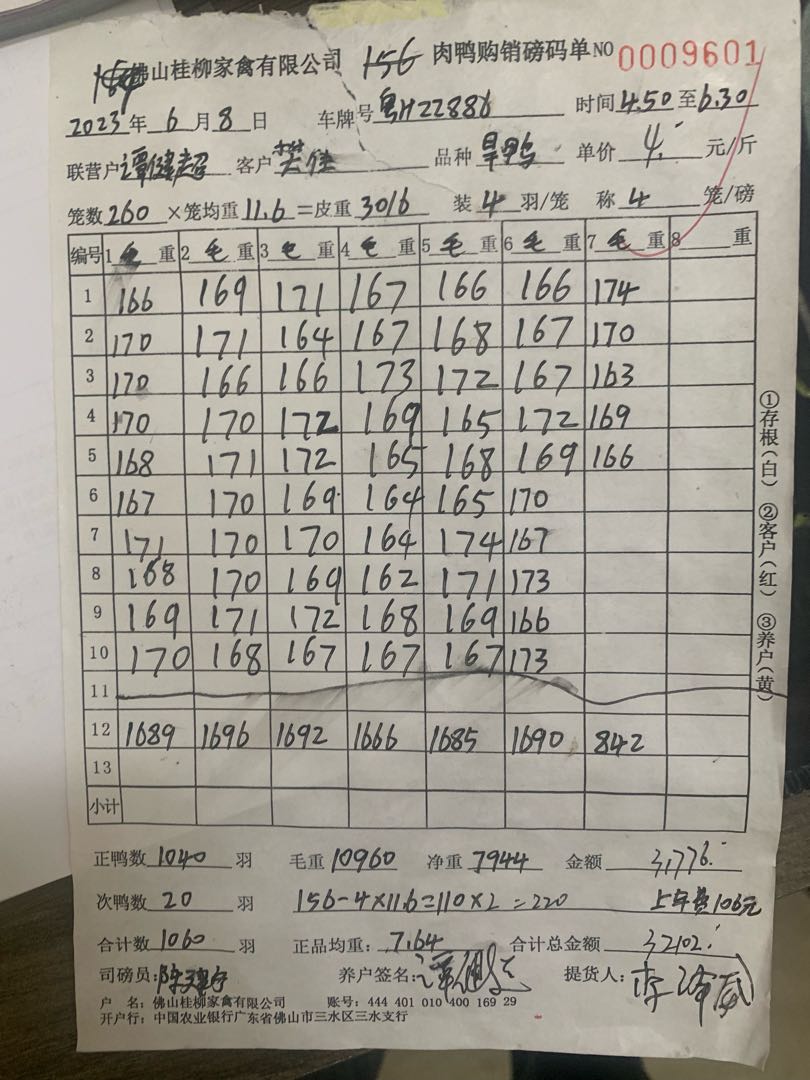 佛山桂柳家禽有限公司 156 肉鸭购销磅码单 NO 0009601
2023年 6 月 8 日 车牌号 粤H22886 时间 4.50 至 6.30
联营户 谭健超 客户 樊佳 品种 旱鸭 单价 4. 元/斤
笼数 260 ×笼均重 11.6 =皮重 3016 装 4 羽/笼 称 4 笼/磅
编号 1 毛 重 2 毛 重 3 毛 重 4 毛 重 5 毛 重 6 毛 重 7 毛 重 8 重
1 166 169 171 167 166 166 174
2 170 171 164 167 168 167 170
3 170 166 166 173 172 167 163
4 170 170 172 169 165 172 169
5 168 171 172 165 168 169 166
6 167 170 169 164 165 170
7 171 170 170 164 174 167
8 168 170 169 162 171 173
9 169 171 172 168 169 166
10 170 168 167 167 167 173
11
12 1689 1696 1692 1666 1685 1690 842
13
小计
①存根(白) ②客户(红) ③养户(黄)
正鸭数 1040 羽 毛重 10960 净重 7944 金额 31,776.
次鸭数 20 羽 156-4×11.6=110×2=220 上车费106元
合计数 1060 羽 正品均重: 7.64 合计总金额 32102.
司磅员: 养户签名: 谭健超 提货人:
户 名: 佛山桂柳家禽有限公司 账号: 444 401 010 400 169 29
开户行: 中国农业银行广东省佛山市三水区三水支行